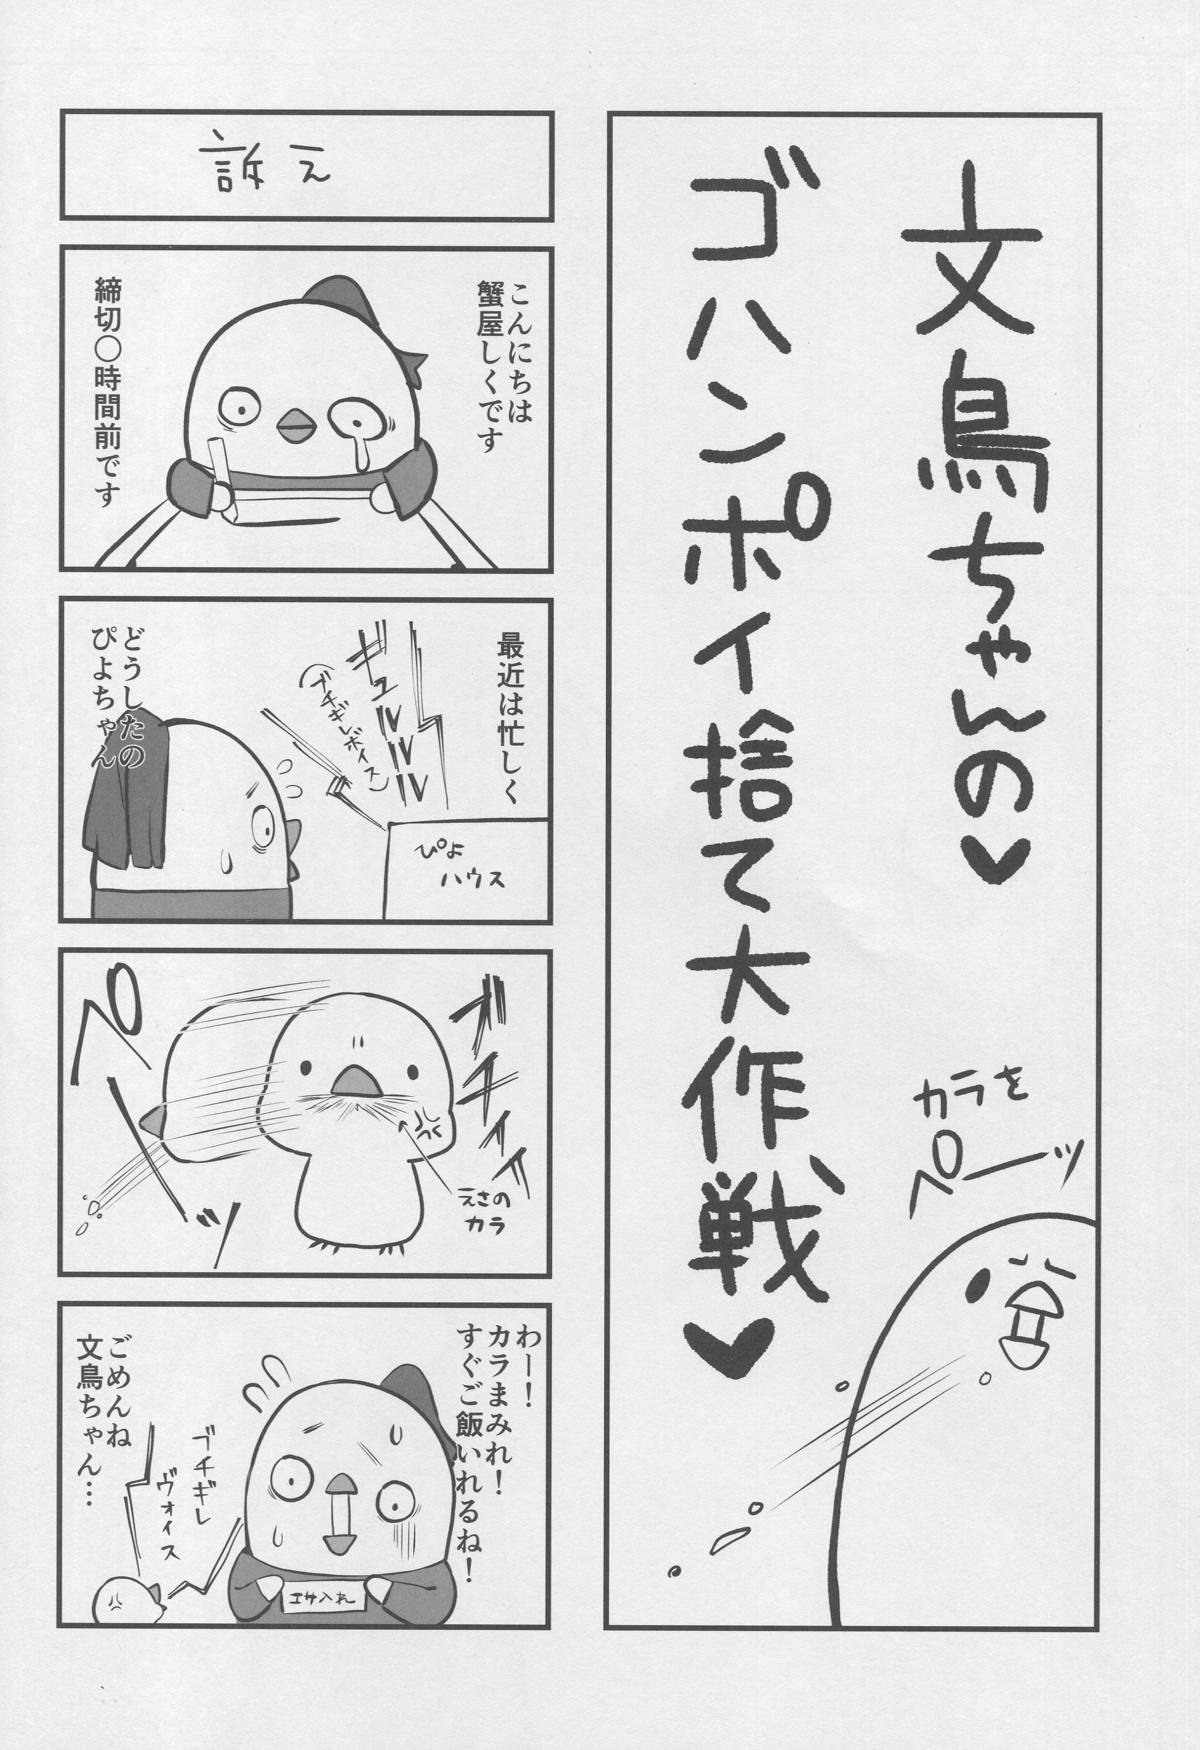 文鳥ちゃんの♥
ゴハンポイ捨て大作戦♥
カラを
ペーッ
訴え
こんにちは
蟹屋しくです
締切〇時間前です
最近は忙しく
ギュルルルル
(ブチギレボイス)
ぴよ
ハウス
どうしたの
ぴよちゃん
ズチィィ
えさの
カラ
ペーッ
わー!
カラまみれ!
すぐご飯いれるね!
エサ入れ
ごめんね
文鳥ちゃん…
ブチギレ
ヴォイス